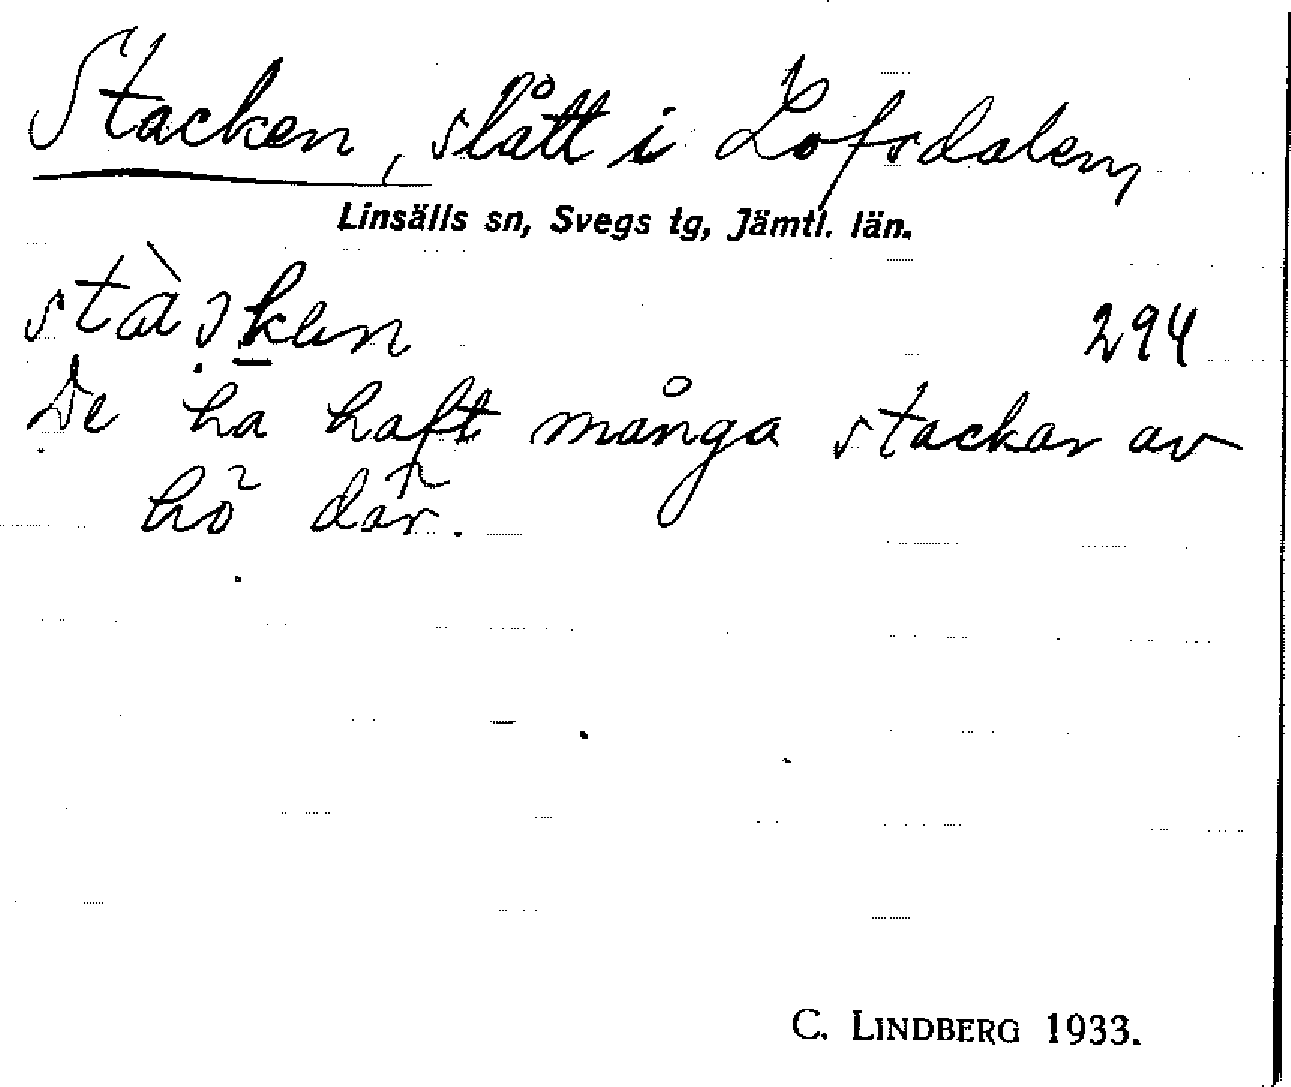 Stacken, slått i Lofsdalen,
Linsälls sn, Svegs tg, Jämtl. län.
294
De ha haft många stackar av
hö där.
C. LINDBERG 1933.